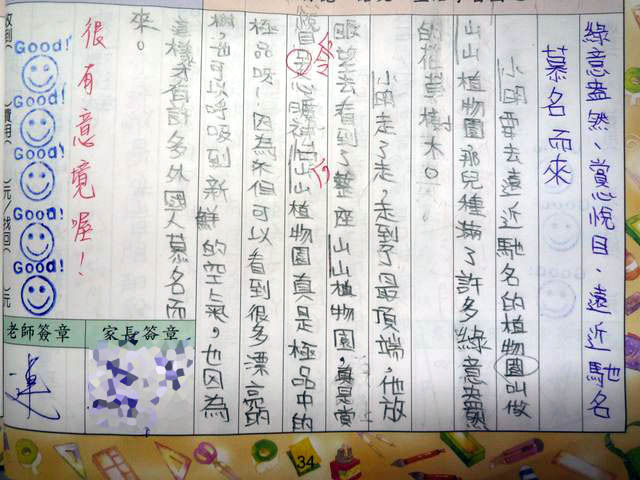 綠意盎然、賞心悅目、遠近馳名
慕名而來
小明要去遠近馳名的植物園叫做
山山植物園那兒種滿了許多綠意盎然
的花草樹木。
小明走了走,走到了最頂端,他放
眼望去看到了整座山山植物園,真是賞
心
山山植物園真是極品中的
極品呀!因為不但可以看到很多漂亮的
樹,也可以呼吸到新鮮的空氣,也因為
這樣才有許多外國人慕名而
來。
很有意境喔!
Good!
Good!
Good!
Good!
Good!
家長簽章
老師簽章
34